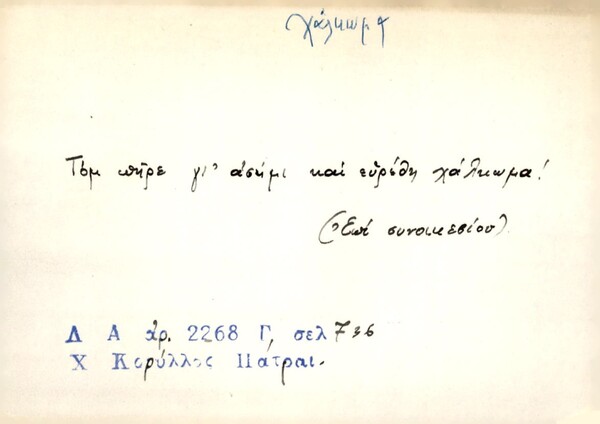 χάλκωμα
Τὸν πῆρε γι' ἀσήμι καὶ εὑρέθη χάλκωμα!
(Ἐπὶ συνοικεσίου).
Λ Α ἀρ. 2268 Γ, σελ 736
Χ Κορύλλος Πάτραι.